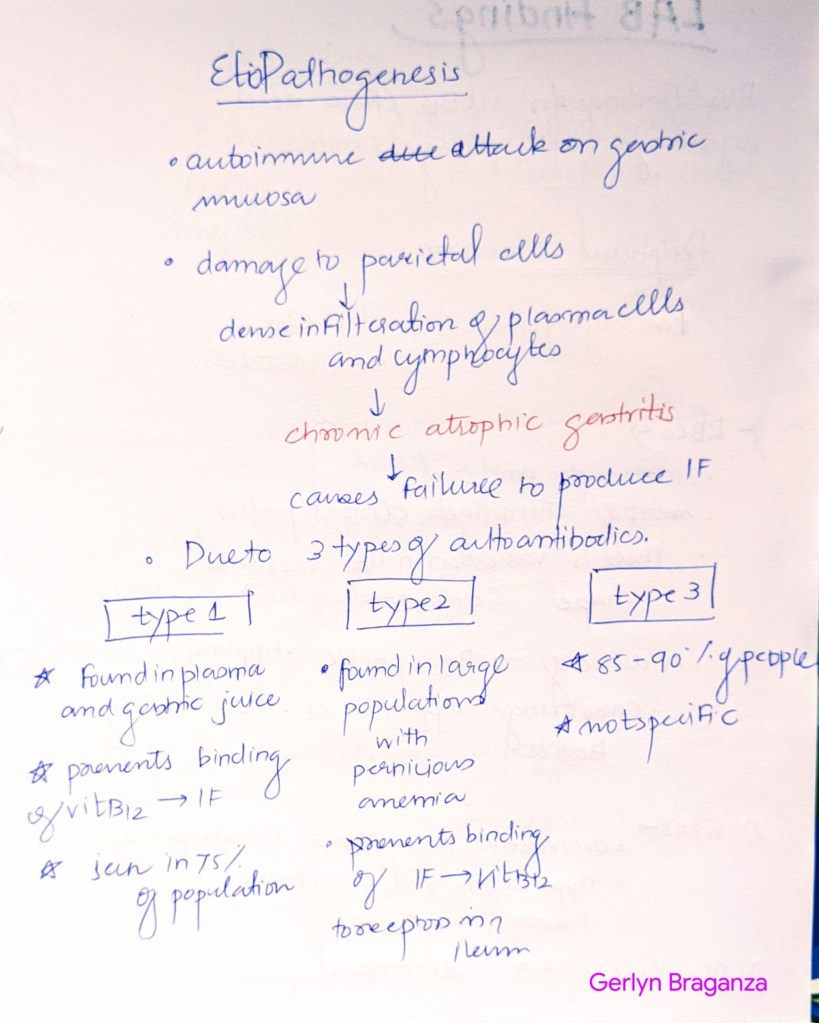 EtioPathogenesis
• autoimmune attack on gastric
mucosa
• damage to parietal cells
↓
dense infilteration of plasma cells
and lymphocytes
↓
chronic atrophic gastritis
↓
causes failure to produce IF
• Due to 3 types of autoantibodies.
type 1
☆ Found in plasma
and gastric juice
☆ prevents binding
of vit B12 → IF
☆ seen in 75%
of population
type 2
• found in large
populations
with
pernicious
anemia
• prevents binding
of IF → vit B12
to receptros in
ileum
type 3
☆ 85-90% of people
☆ not specific
Gerlyn Braganza